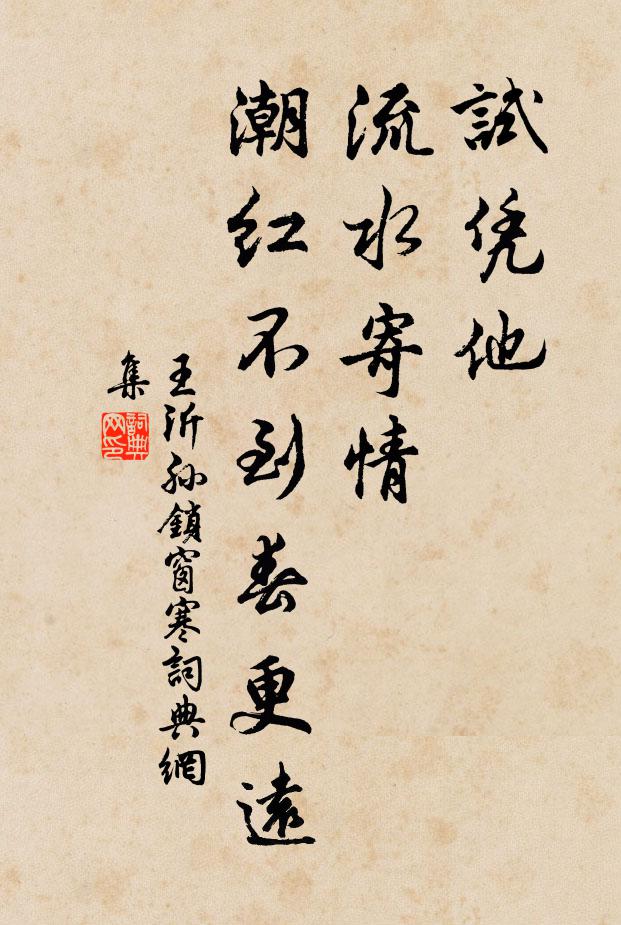 試凭他
流水寄情
潮红不到春更遠
王沂孙鎖窗寒詞典網
集
詞典
网印